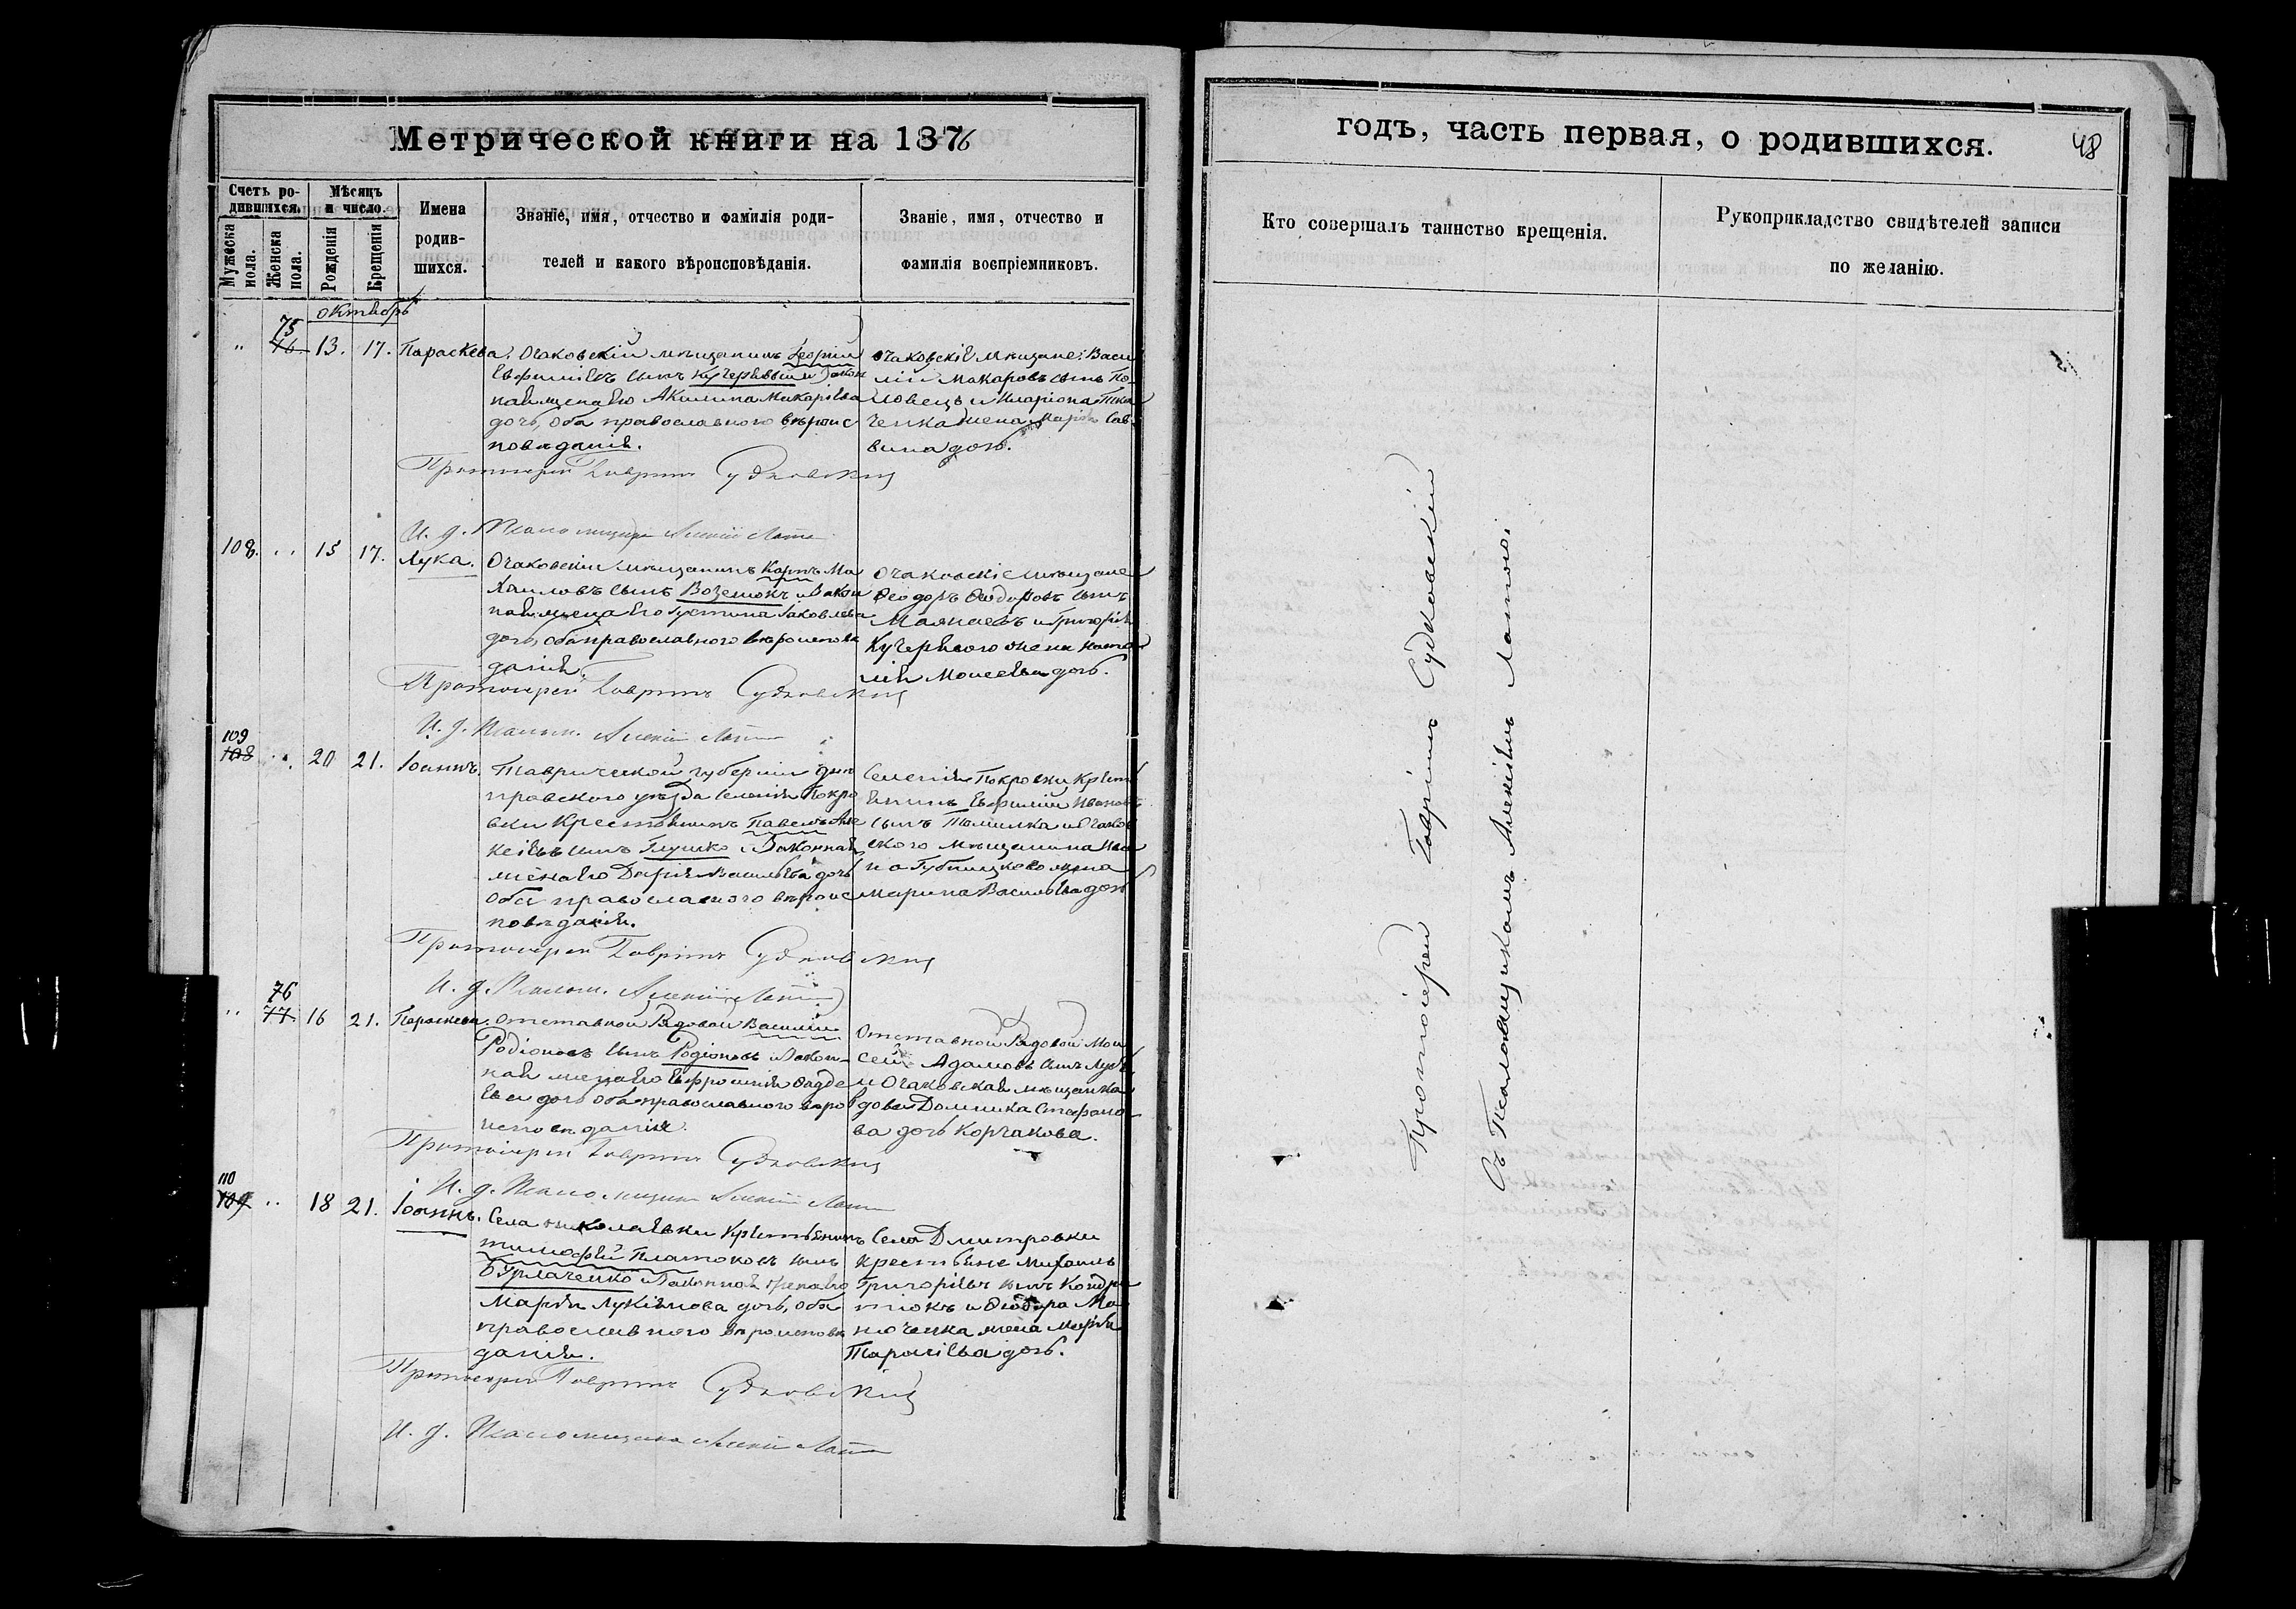 Метрической книги на 1876
Счетъ ро-
дившихся.
Мѣсяцъ
и число.
Мужеска
пола.
Женска
пола.
Рожденія
Крещенія
Имена
родив-
шихся.
Званіе, имя, отчество и фамилія роди-
телей и какого вѣроисповѣданія.
Званіе, имя, отчество и
фамилія воспріемниковъ.
октябрь
75
" 76 13. 17. Параскева.
Очаковскій мѣщанинъ Георгій
Евфиміевъ сынъ Кучерявый и закон
ная жена его Акилина Макаріева
дочь, оба православного вѣроис
повѣданія.
Очаковскіе мѣщане: Васи
лій Макаровъ сынъ По
ловецъ и Иларіона Тка
ченка жена Марія Сав
вина дочь.
Протоіерей Гавріилъ Судковскій
И. д. Псаломщика Алексій
108. " 15 17. Лука.
Очаковскій мѣщанинъ Карпъ Ми
хаиловъ сынъ Возсіюкъ и закон
ная жена его Іустина Іаковлева
дочь, оба православного вѣроисповѣ
данія.
Очаковскіе мѣщане
Ѳеодоръ Ѳеодоровъ сынъ
и Григорія
Кучерявого жена Ната
лія Моисеева дочь.
Протоіерей Гавріилъ Судковскій
И. д. Псалом. Алексій
109
108 " 20 21. Іоаннъ.
Таврической губерніи Днѣ
провского уѣзда селенія Покро
вки Крестьянинъ Павелъ Але
ксіевъ сынъ Глушко и законная
жена его Дарія Васильева дочь
оба православного вѣроис
повѣданія.
Селенія Покровки Кресть
янинъ Евфимій Ивановъ
сынъ Томилка и Очаков
ского мѣщанина Ива
на Губницкого жена
Марина Васильева дочь
Протоіерей Гавріилъ Судковскій
И. д. Псалом. Алексій
76
" 77 16 21. Параскева.
Отставной Рядовой Василій
Родіоновъ сынъ Родіоновъ и закон-
ная жена его Евфросинія Фадде
ева дочь оба православного вѣро
исповѣданія.
Отставной Рядовой Мои
сей Адамовъ сынъ
и Очаковская мѣщанка
вдова Домника Стефано
ва дочь Корчакова.
Протоіерей Гавріилъ Судковскій
110
109 " 18 21. Іоаннъ.
И. д. Псаломщика Алексій
Села Николаевки Крестьянинъ
Тимофей Платоновъ сынъ
Бурлаченко и законная жена его
Марія Лукіянова дочь, оба
православного вѣроисповѣ
данія.
Села Дмитровки
крестьяне Михаилъ
Григоріевъ сынъ Кондра
тюкъ и Ѳеодора Ма
нюченка жена Марія
Тарасіева дочь.
Протоіерей Гавріилъ Судковскій
И. д. Псаломщика Алексій
годъ, часть первая, о родившихся.
48
Кто совершалъ таинство крещенія.
Рукоприкладство свидѣтелей записи
по желанію.
Протоіерей Гавріилъ Судковскій
Съ Псаломщикомъ Алексіемъ